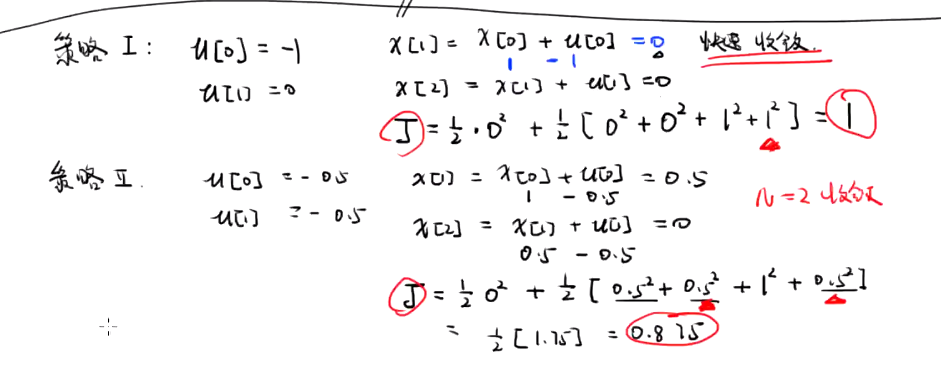 策略 I: u[0] = -1 x[1] = x[0] + u[0] = 0 快速收敛.
1 -1
u[1] = 0 x[2] = x[1] + u[1] = 0
J = 1/2 · 0² + 1/2 [ 0² + 0² + 1² + 1² ] = 1
策略 II. u[0] = -0.5 x[1] = x[0] + u[0] = 0.5
1 - 0.5 N=2 收敛
u[1] = -0.5 x[2] = x[1] + u[1] = 0
0.5 - 0.5
J = 1/2 0² + 1/2 [ 0.5² + 0.5² + 1² + 0.5² ]
= 1/2 [1.75] = 0.875